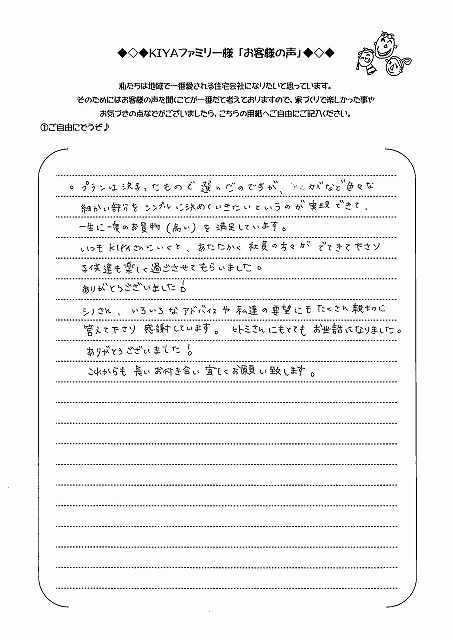 ◆◇◆KIYAファミリー様「お客様の声」◆◇◆
私たちは地域で一番愛される住宅会社になりたいと思っています。
そのためにはお客様の声を聞くことが一番だと考えておりますので、家づくりで楽しかった事や
お気づきの点などがございましたら、こちらの用紙へご自由にご記入ください。
①ご自由にどうぞ♪
○プランは決まったもので選んだのですが、など色々な
細かい部分をシンプルに決めていきたいというのが実現できて、
一生に一度のお買物(高い)を満足しています。
いつもKIYAさんにいくと、あたたかく社員の方々がでてきて下さり
子供達も楽しく過ごさせてもらいました。
ありがとうございました!
シノさん、いろいろなアドバイスや私達の要望にもたくさん親切に
答えて下さり感謝しています。ヒトミさんにもとてもお世話になりました。
ありがとうございました!
これからも長いお付き合い宜しくお願い致します。